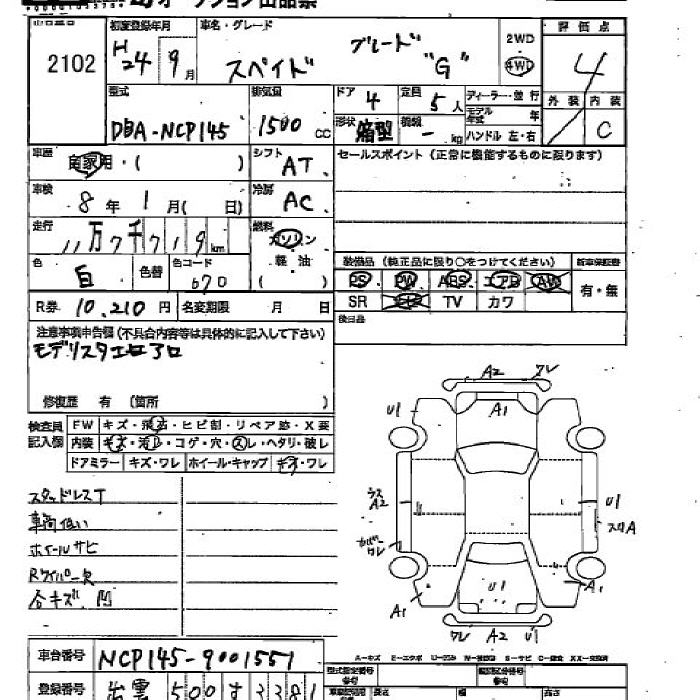 オークション出品票
出品番号
2102
初度登録年月
H24 9月
車名・グレード
スペイド グレード "G"
2WD
4WD
評価点
4
外装 内装
C
型式
DBA-NCP145
排気量
1500 CC
ドア 4
定員 5人
形状 箱型
積載 - kg
ディーラー・並行
モデル年式 年
ハンドル 左・右
車歴
自家用・( )
シフト
AT
セールスポイント(正常に機能するものに限ります)
車検
8年 1月( 日)
冷房
AC
走行
11万7千719km
燃料
ガソリン
軽油
( )
色
白
色替
色コード
070
装備品(純正品に限り○をつけてください)
新車保証書
PS PW ABS エアB AW
有・無
SR ナビ TV カワ
R券 10,210円
名変期限 月 日
後日品
注意事項申告欄(不具合内容等は具体的に記入して下さい)
モデリスタエアロ
修復歴 有 (箇所
検査員記入欄
FW キズ・飛石・ヒビ割・リペア跡・X要
内装 キズ・汚レ・コゲ・穴・スレ・ヘタリ・破レ
ドアミラー キズ・ワレ ホイール・キャップ キズ・ワレ
スタッドレスT
車高低い
ホイールサビ
Rワイパー欠
各キズ、凹
A2 ワレ
U1 A1
ラス A2
U1
スリA
カバー ワレ
U1
A1 A1
ワレ A2 U1
A=キズ E=エクボ U=凹み W=補修跡 S=サビ C=腐食 XX=交換済
車台番号
NCP145-9001551
型式指定番号
類別区分番号
登録番号
出雲 500 す 3381